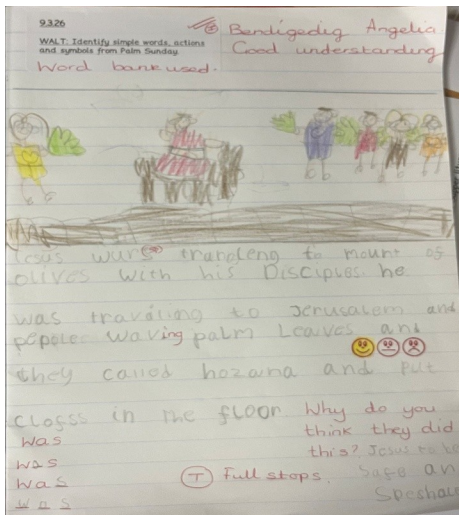 9.3.26
WALT: Identify simple words, actions
and symbols from Palm Sunday
Word bank used.
Bendigedig Angelia
Good understanding
Jesus wurs trangleng to mount of
olives with his Disciples he
was travaling to Jerusalem and
pepolee waving palm Leaves and
they called hozana and put
clofss in the floor
Why do you
think they did
this? Jesus to be
Safe an
Speshal
was
was
was
was
T Full stops.